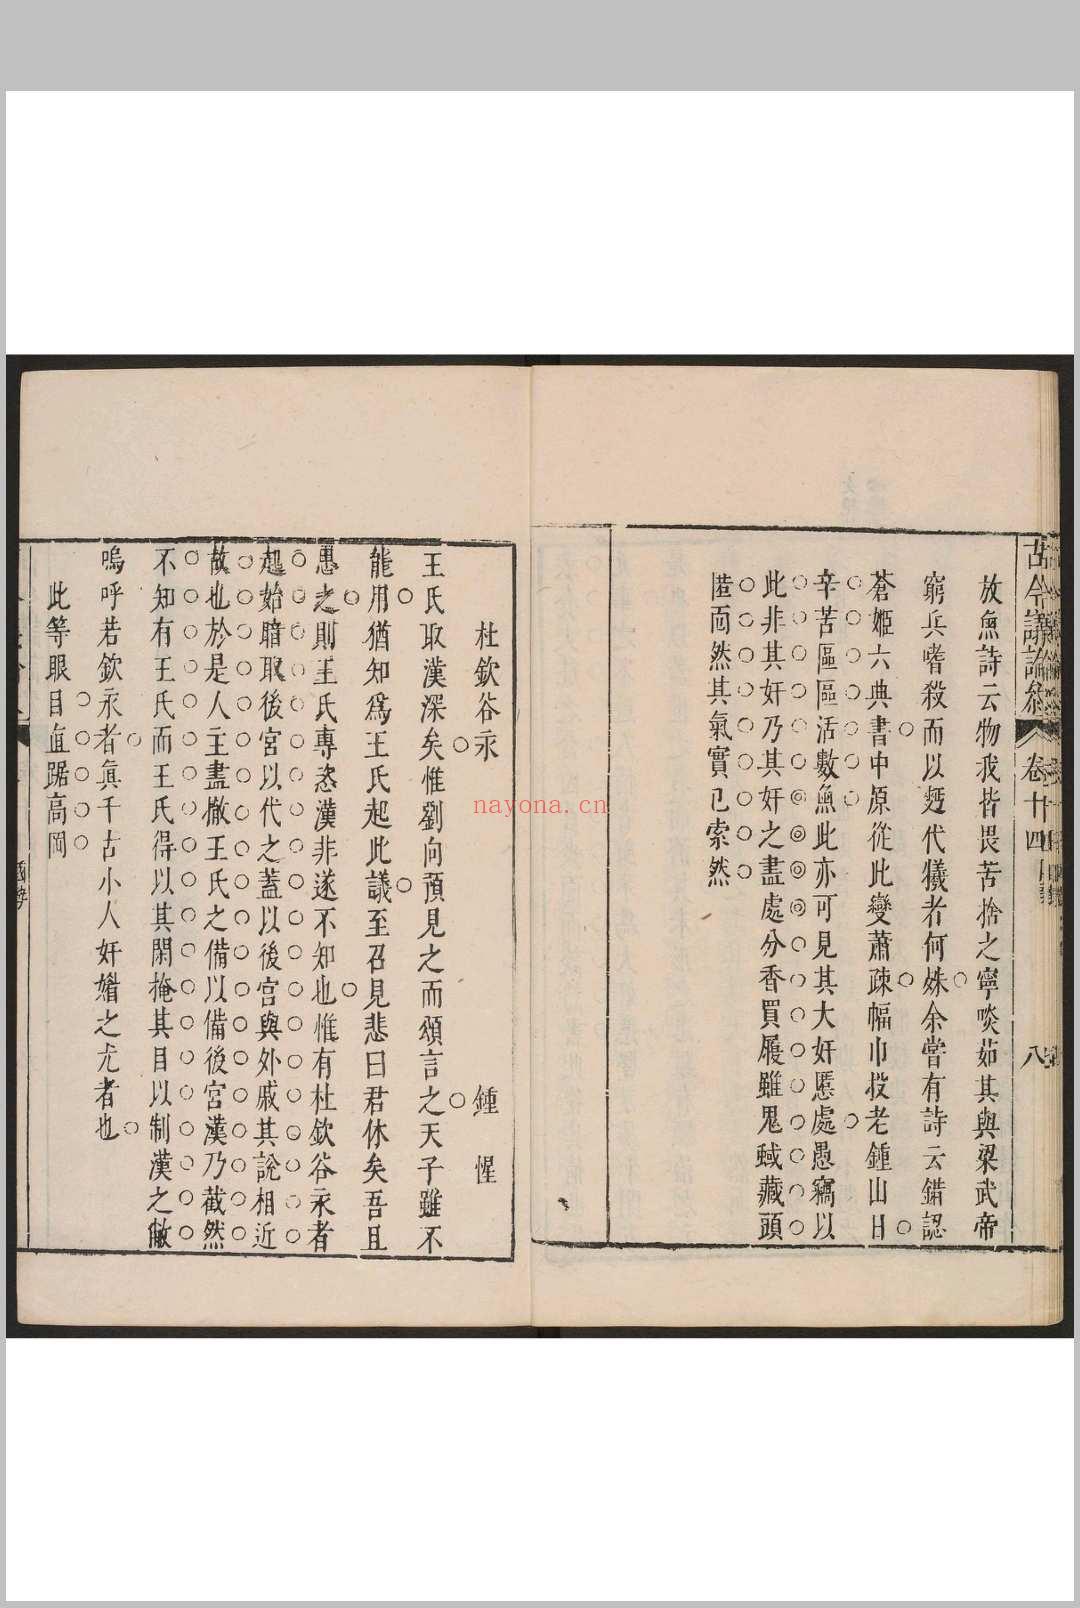 古今議論參
卷十四
八
放魚詩云物我皆畏苦捨之寧啖茹其與梁武帝
窮兵嗜殺而以麪代犧者何殊余嘗有詩云錯認
蒼姬六典書中原從此變蕭疎幅巾投老鍾山日
辛苦區區活數魚此亦可見其大奸慝處愚竊以
此非其奸乃其奸之盡處分香買履雖鬼蜮藏頭
匿面然其氣實已索然
杜欽谷永
鍾惺
王氏取漢深矣惟劉向預見之而頌言之天子雖不
能用猶知為王氏起此議至召見悲曰君休矣吾且
愚之則王氏專恣漢非遂不知也惟有杜欽谷永者
起始暗取後宮以代之蓋以後宮與外戚其說相近
故也於是人主盡撤王氏之備以備後宮漢乃截然
不知有王氏而王氏得以其閑掩其目以制漢之敝
嗚呼若欽永者眞千古小人奸媢之尤者也
此等眼目直踞高岡
國勢
nayona.cn